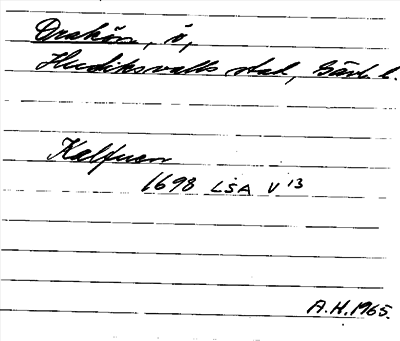 Drakön, ö,
Hudiksvalls stad, Gävl. l.
Kalfuen
1698 LSA V 13
A.H. 1965.